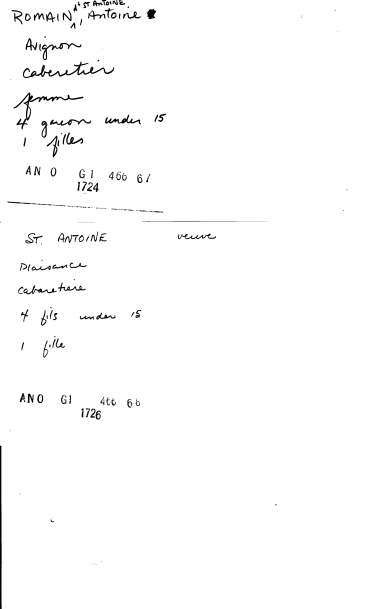 ROMAIN dt ST ANTOINE, Antoine
Avignon
Cabaretier
femme
4 garcon under 15
1 filles
ANO G1 466 61
1724
ST. ANTOINE veuve
Plaisance
cabaretiere
4 fils under 15
1 fille
ANO G1 466 66
1726